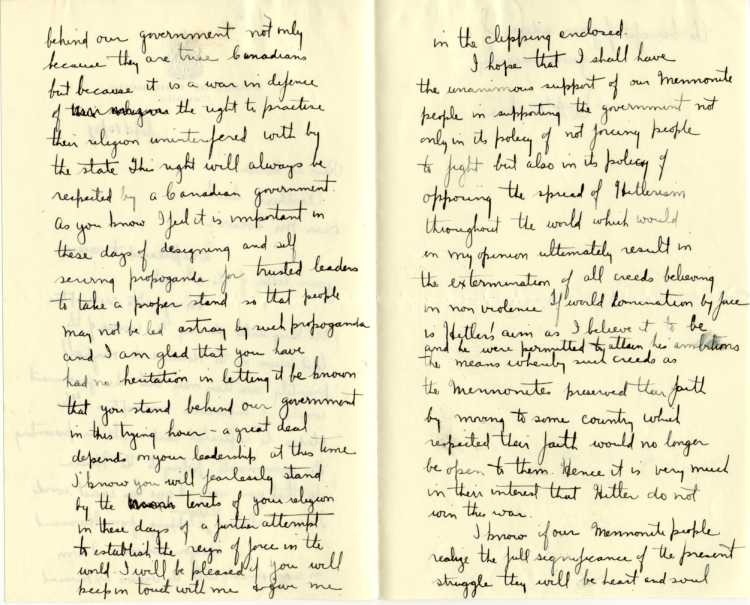 in the clipping enclosed.
I hope that I shall have
the unanimous support of our Mennonite
people in supporting the government not
only in its policy of not forcing people
to fight but also in its policy of
opposing the spread of Hitlerism
throughout the world which would
in my opinion ultimately result in
the extermination of all creeds believing
in non violence If world domination by force
is Hitler's aim as I believe it to be
and he were permitted to attain his ambitions
the means whereby such creeds as
the Mennonites preserved their faith
by moving to some country which
respected their faith would no longer
be open to them. Hence it is very much
in their interest that Hitler do not
win this war.
I know if our Mennonite people
realize the full significance of the present
struggle they will be heart and soul
behind our government not only
because they are true Canadians
but because it is a war in defence
of the right to practise
their religion uninterfered with by
the state This right will always be
respected by a Canadian government.
As you know I feel it is important in
these days of designing and self
serving propoganda for trusted leaders
to take a proper stand so that people
may not be led astray by such propoganda
and I am glad that you have
had no hesitation in letting it be known
that you stand behind our government
in this trying hour - a great deal
depends on your leadership at this time
I know you will fearlessly stand
by the tenets of your religion
in these days of a further attempt
to establish the reign of force in the
world. I will be pleased if you will
keep in touch with me & give me